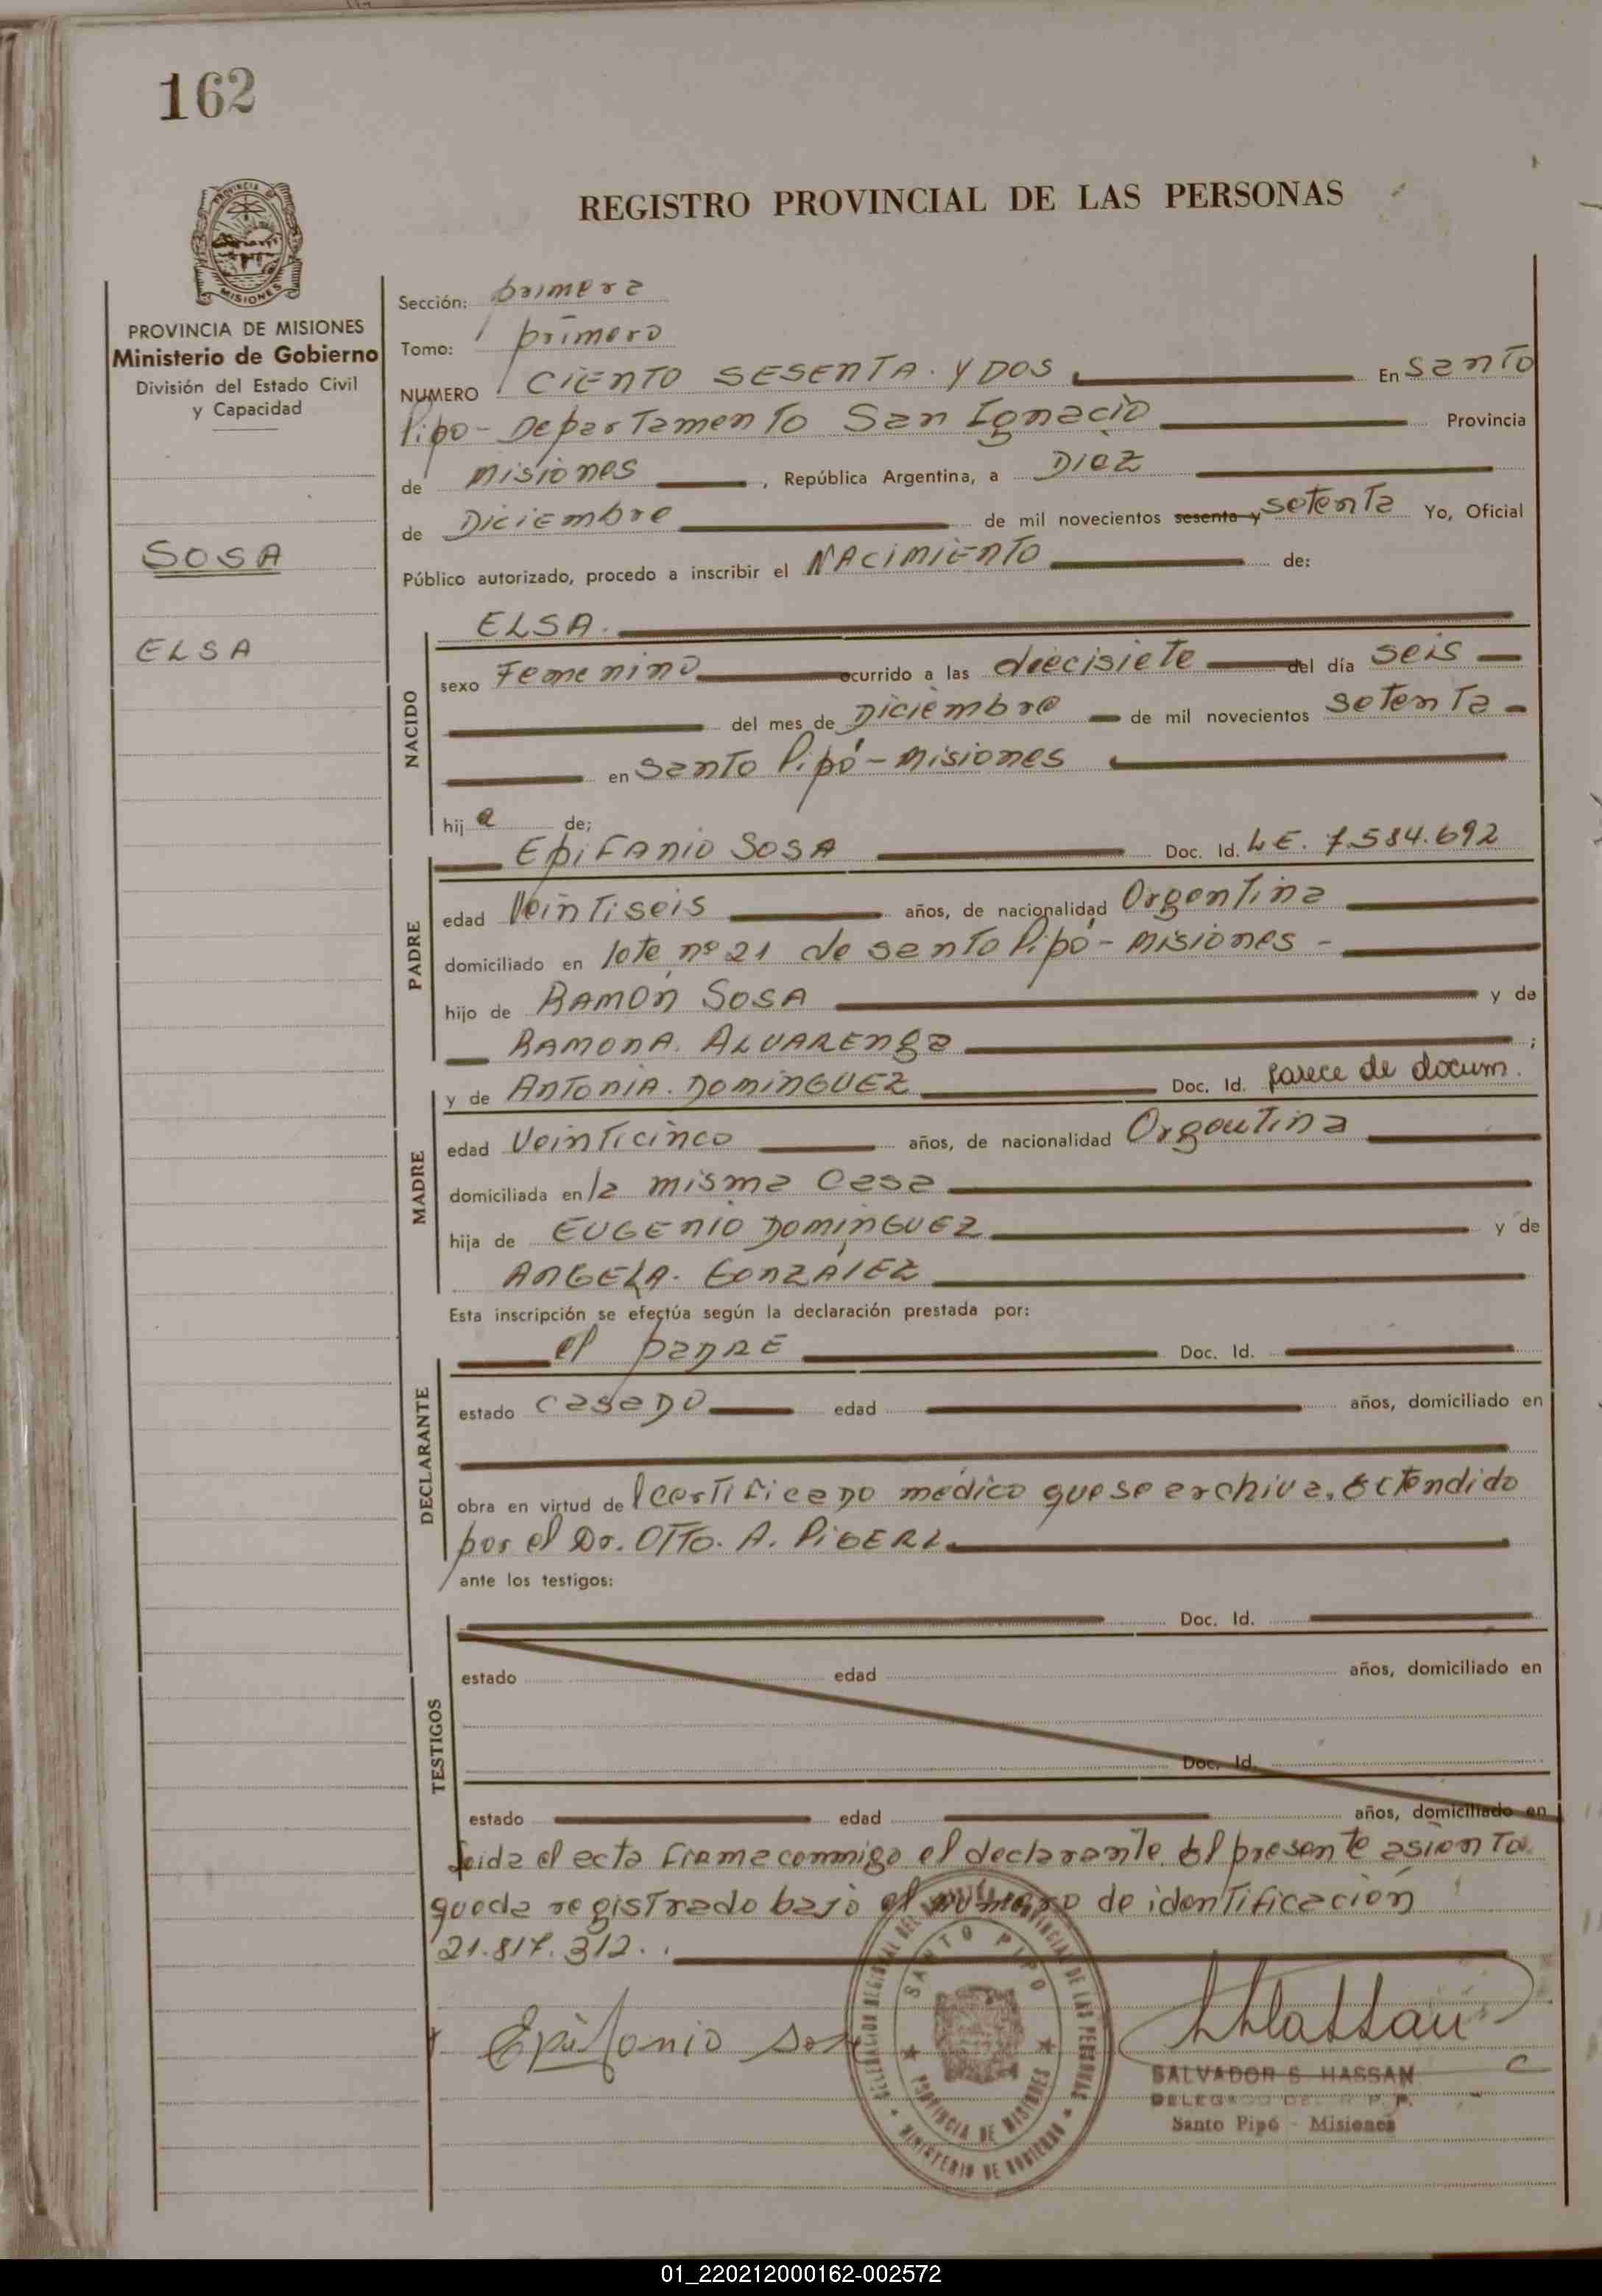 162
PROVINCIA DE
MISIONES
PROVINCIA DE MISIONES
Ministerio de Gobierno
División del Estado Civil
y Capacidad
SOSA
ELSA
REGISTRO PROVINCIAL DE LAS PERSONAS
Sección: primera
Tomo: primero
NUMERO CIENTO SESENTA Y DOS En Santo
Pipo - Departamento San Ignacio Provincia
de Misiones, República Argentina, a Diez
de Diciembre de mil novecientos sesenta y setenta Yo, Oficial
Público autorizado, procedo a inscribir el NACIMIENTO de:
NACIDO
ELSA.
sexo Femenino ocurrido a las diecisiete del día seis
del mes de Diciembre de mil novecientos setenta
en Santo Pipó - Misiones
hij a de;
PADRE
EpiFANIO SOSA Doc. Id. L.E. 7.584.692
edad Veintiseis años, de nacionalidad Orgentina
domiciliado en lote nº 21 de santo Pipó - Misiones -
hijo de RAMON SOSA y de
RAMONA. ALVARENga ;
MADRE
y de ANTONIA. DOMINGUEZ Doc. Id. parece de docum.
edad Veinticinco años, de nacionalidad Orgentina
domiciliada en la misma Casa
hija de EUGENIO DOMINGUEZ y de
ANGELA. GONZALEZ
Esta inscripción se efectúa según la declaración prestada por:
DECLARANTE
el padRE Doc. Id.
estado casado edad años, domiciliado en
obra en virtud de l certificado médico que se archiva, extendido
por el Dr. OTTO. A.
ante los testigos:
TESTIGOS
Doc. Id.
estado edad años, domiciliado en
Doc. Id.
estado edad años, domiciliado en
Leida el acta firma conmigo el declarante. El presente asiento
queda registrado bajo el numero de identificación
21.817.312..
Epifanio Sosa
DELEGACION REGIONAL DEL REGISTRO PROVINCIAL DE LAS PERSONAS
SANTO PIPO
PROVINCIA DE MISIONES
MINISTERIO DE GOBIERNO
SALVADOR S. HASSAN
DELEGADO DEL R. P. P.
Santo Pipó - Misiones
01_220212000162-002572